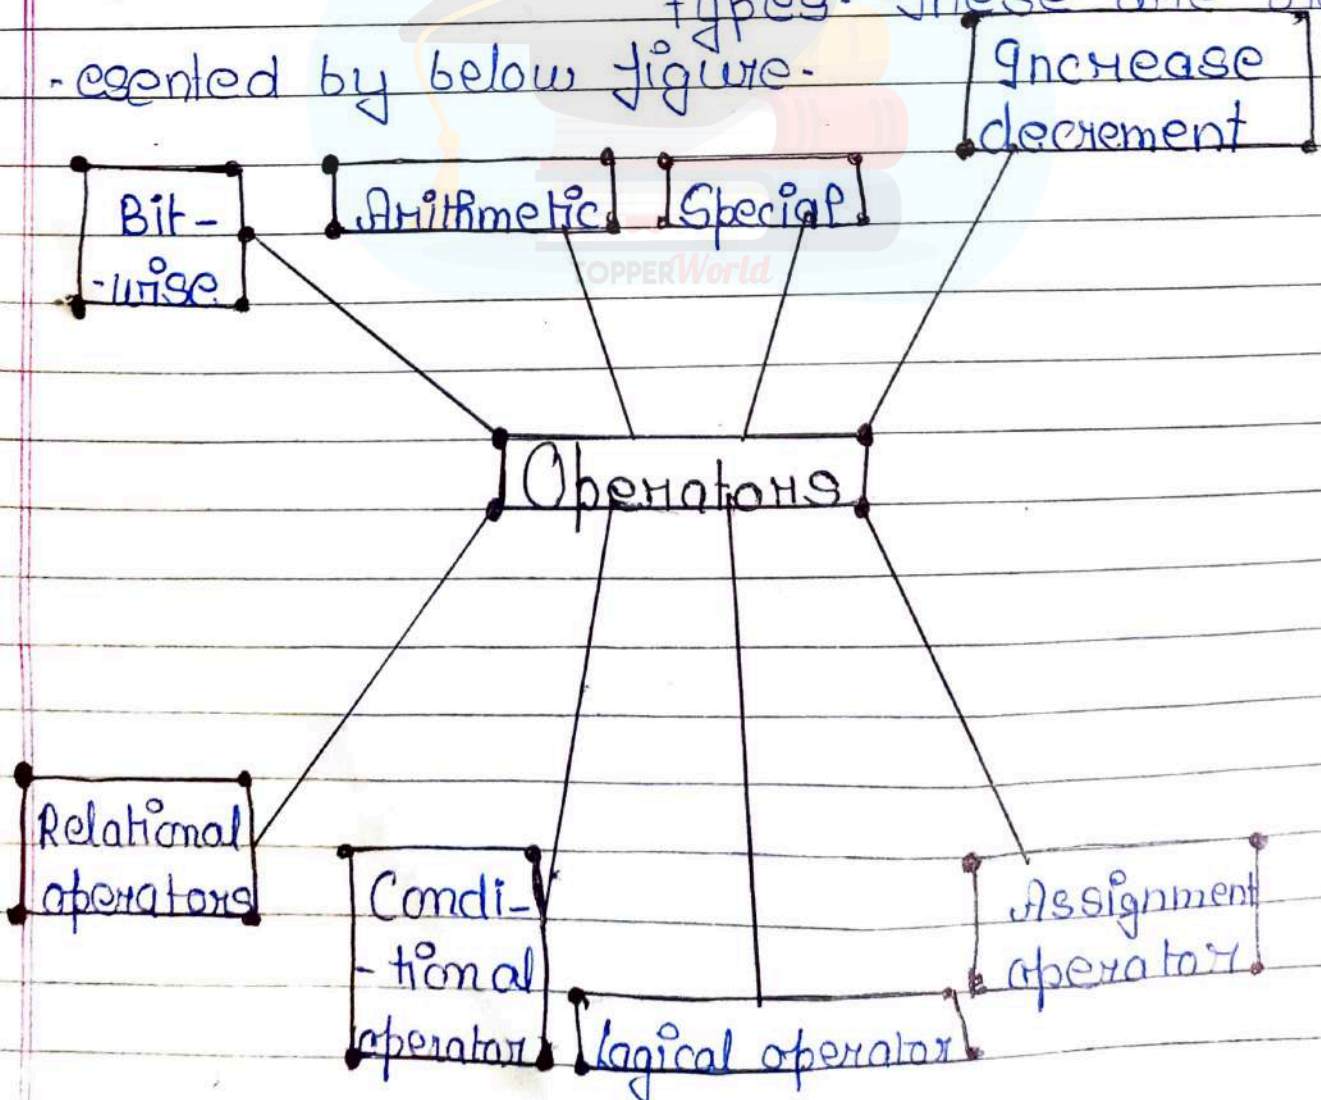 types. These are
-esented by below figure.
Increase
decrement
Bit-
-wise
Arithmetic
Special
TOPPERWorld
Operators
Relational
operators
Condi-
-tional
operator
Logical operator
Assignment
operator